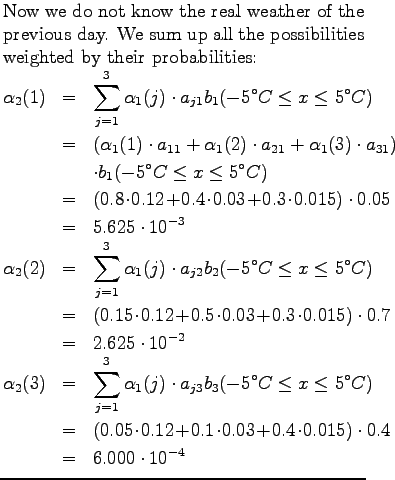 Now we do not know the real weather of the
previous day. We sum up all the possibilities
weighted by their probabilities:
α₂(1) = ∑_{j=1}^{3} α₁(j) · a_{j1}b₁(−5°C ≤ x ≤ 5°C)
= (α₁(1) · a₁₁ + α₁(2) · a₂₁ + α₁(3) · a₃₁)
·b₁(−5°C ≤ x ≤ 5°C)
= (0.8·0.12+0.4·0.03+0.3·0.015) · 0.05
= 5.625 · 10⁻³
α₂(2) = ∑_{j=1}^{3} α₁(j) · a_{j2}b₂(−5°C ≤ x ≤ 5°C)
= (0.15·0.12+0.5·0.03+0.3·0.015) · 0.7
= 2.625 · 10⁻²
α₂(3) = ∑_{j=1}^{3} α₁(j) · a_{j3}b₃(−5°C ≤ x ≤ 5°C)
= (0.05·0.12+0.1·0.03+0.4·0.015) · 0.4
= 6.000 · 10⁻⁴